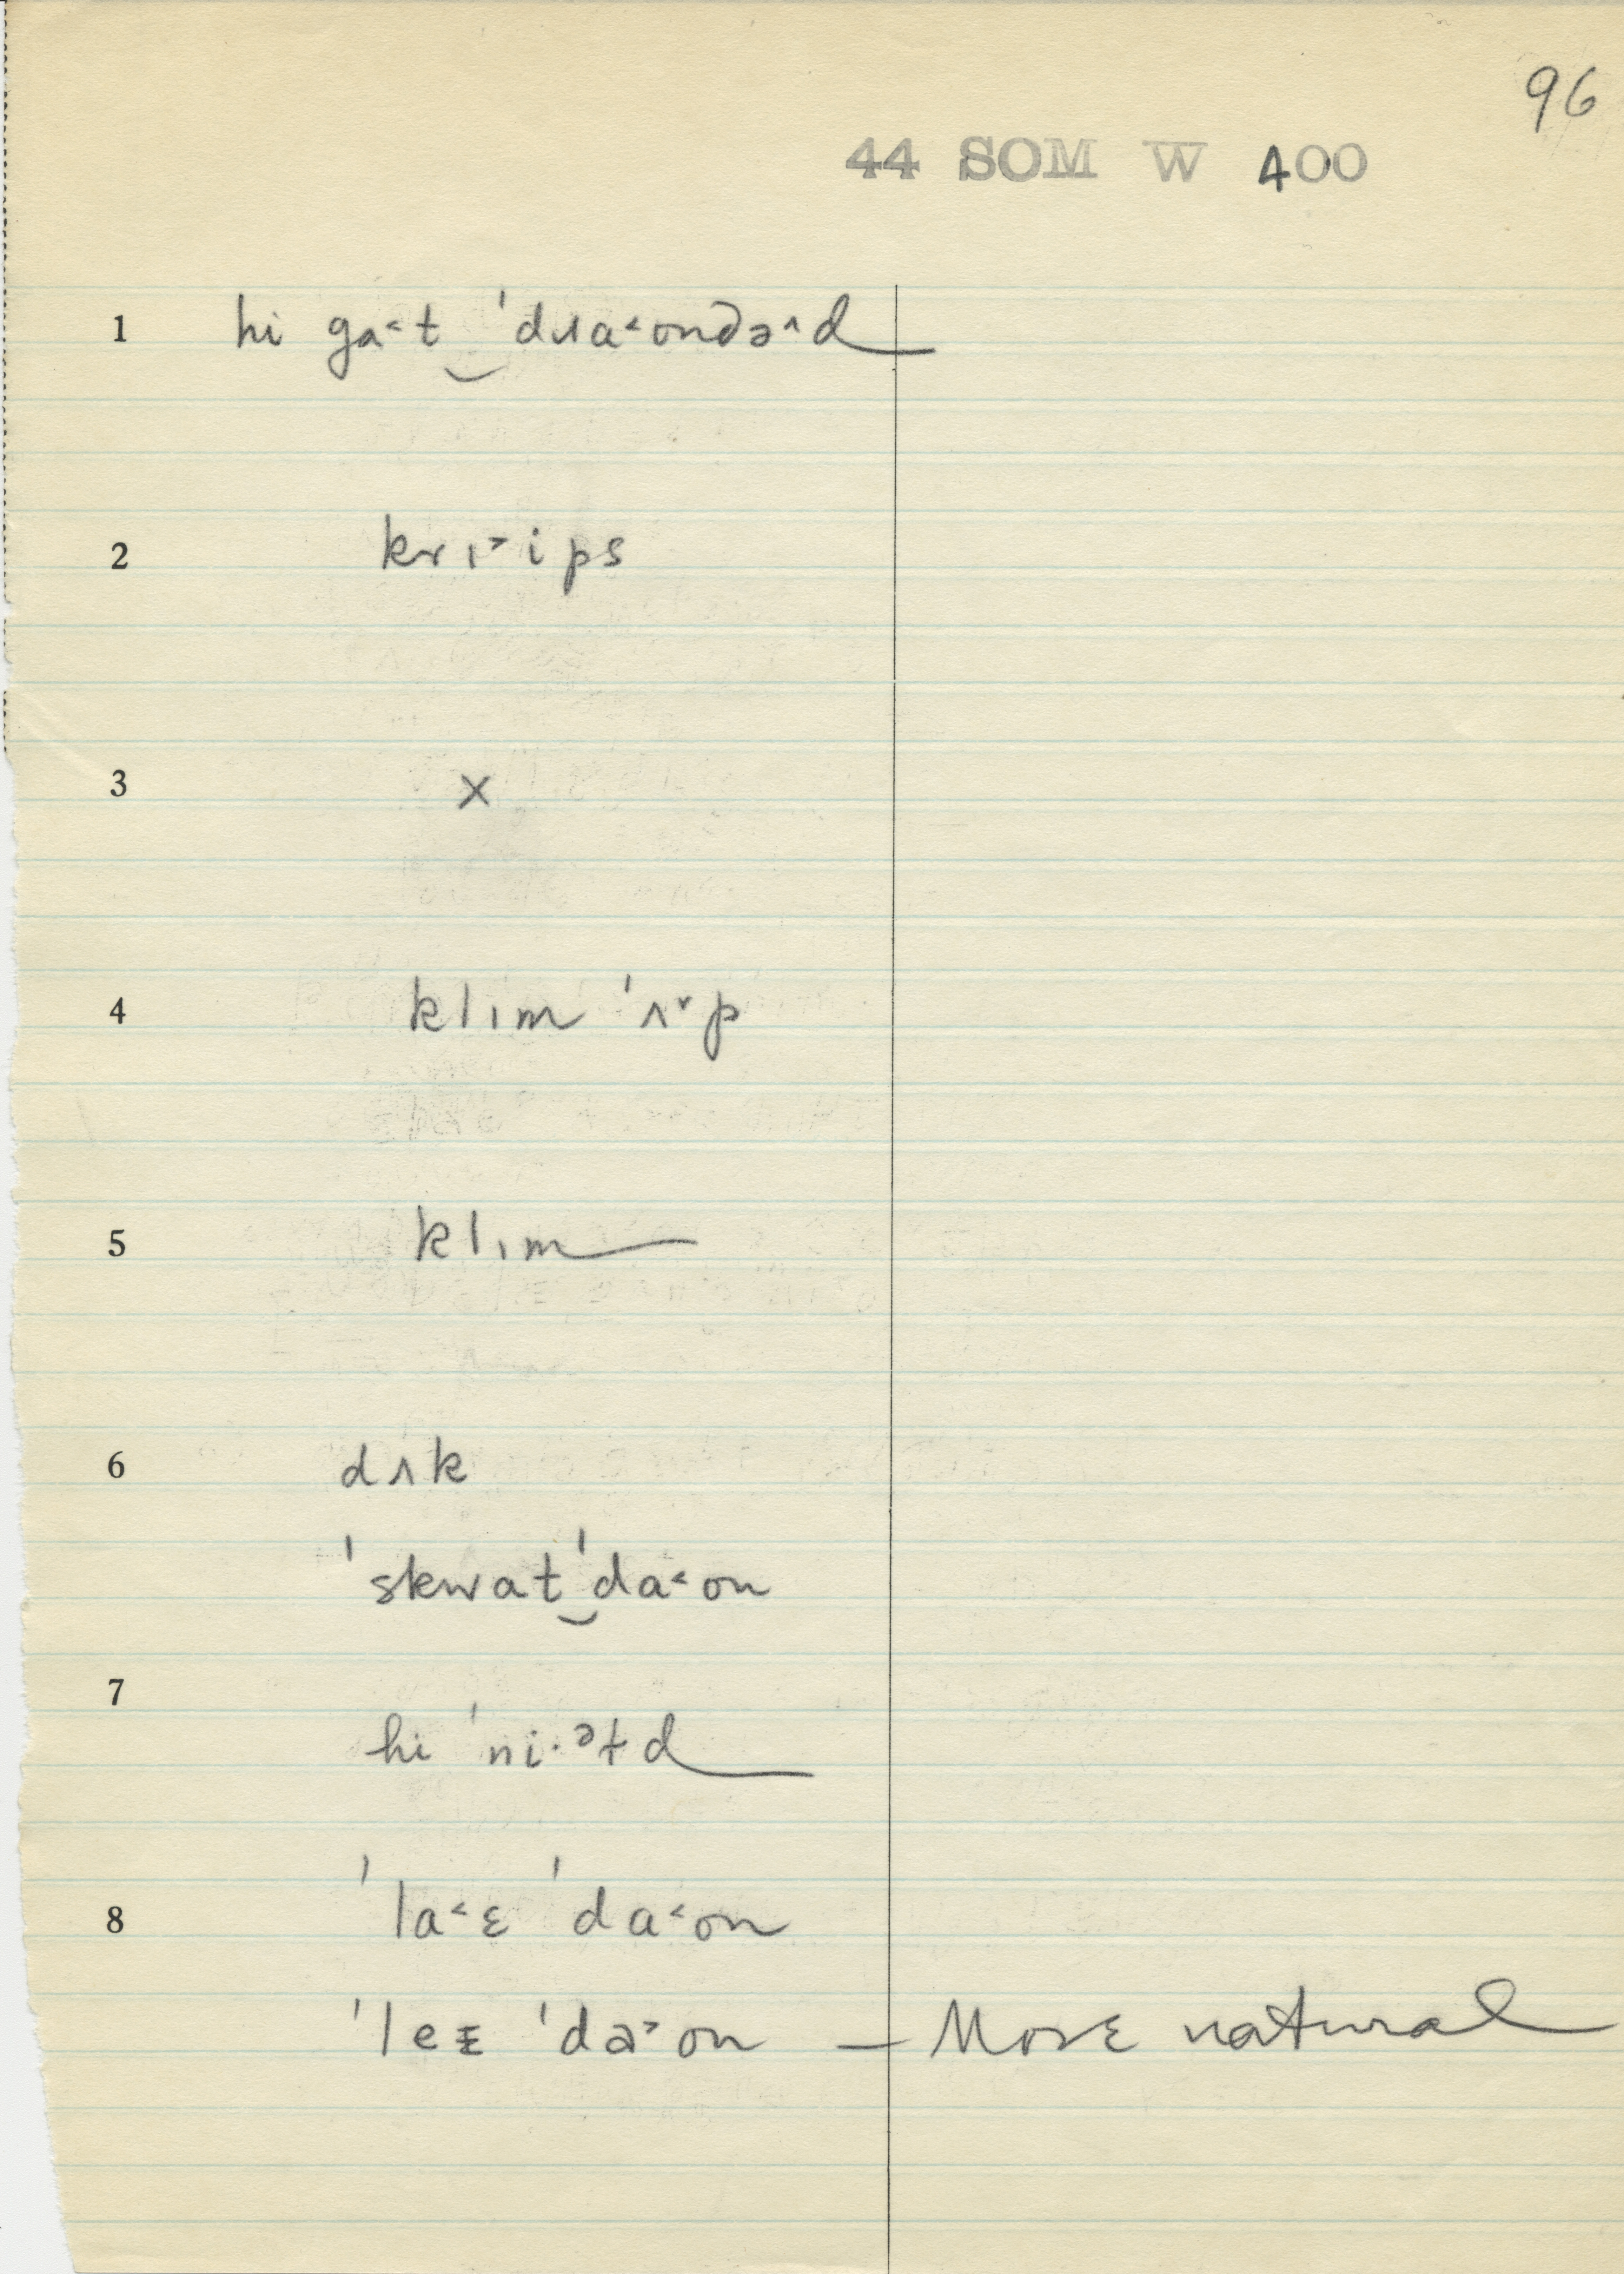 96
44 SOM W 400
1 hi ga˂t‿ˈdɹa˂ondə˄d
2 krɪ˃ips
3 x
4 klɪm ˈʌ˅p
5 klɪm
6 dʌk
ˈskwat‿ˈda˂on
7
hi ˈni·ᵊɫd
8 ˈla˂ɛ ˈda˂on
ˈleᵻ ˈdə˃on — More natural